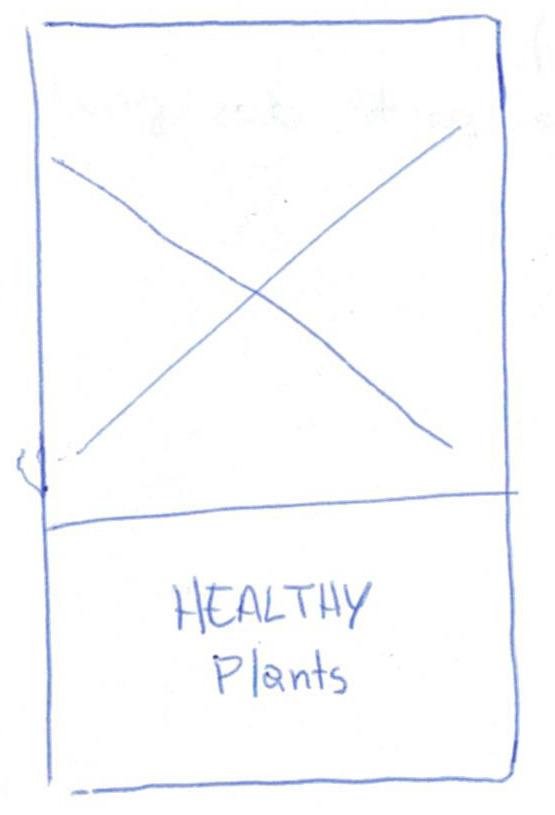 HEALTHY
Plants